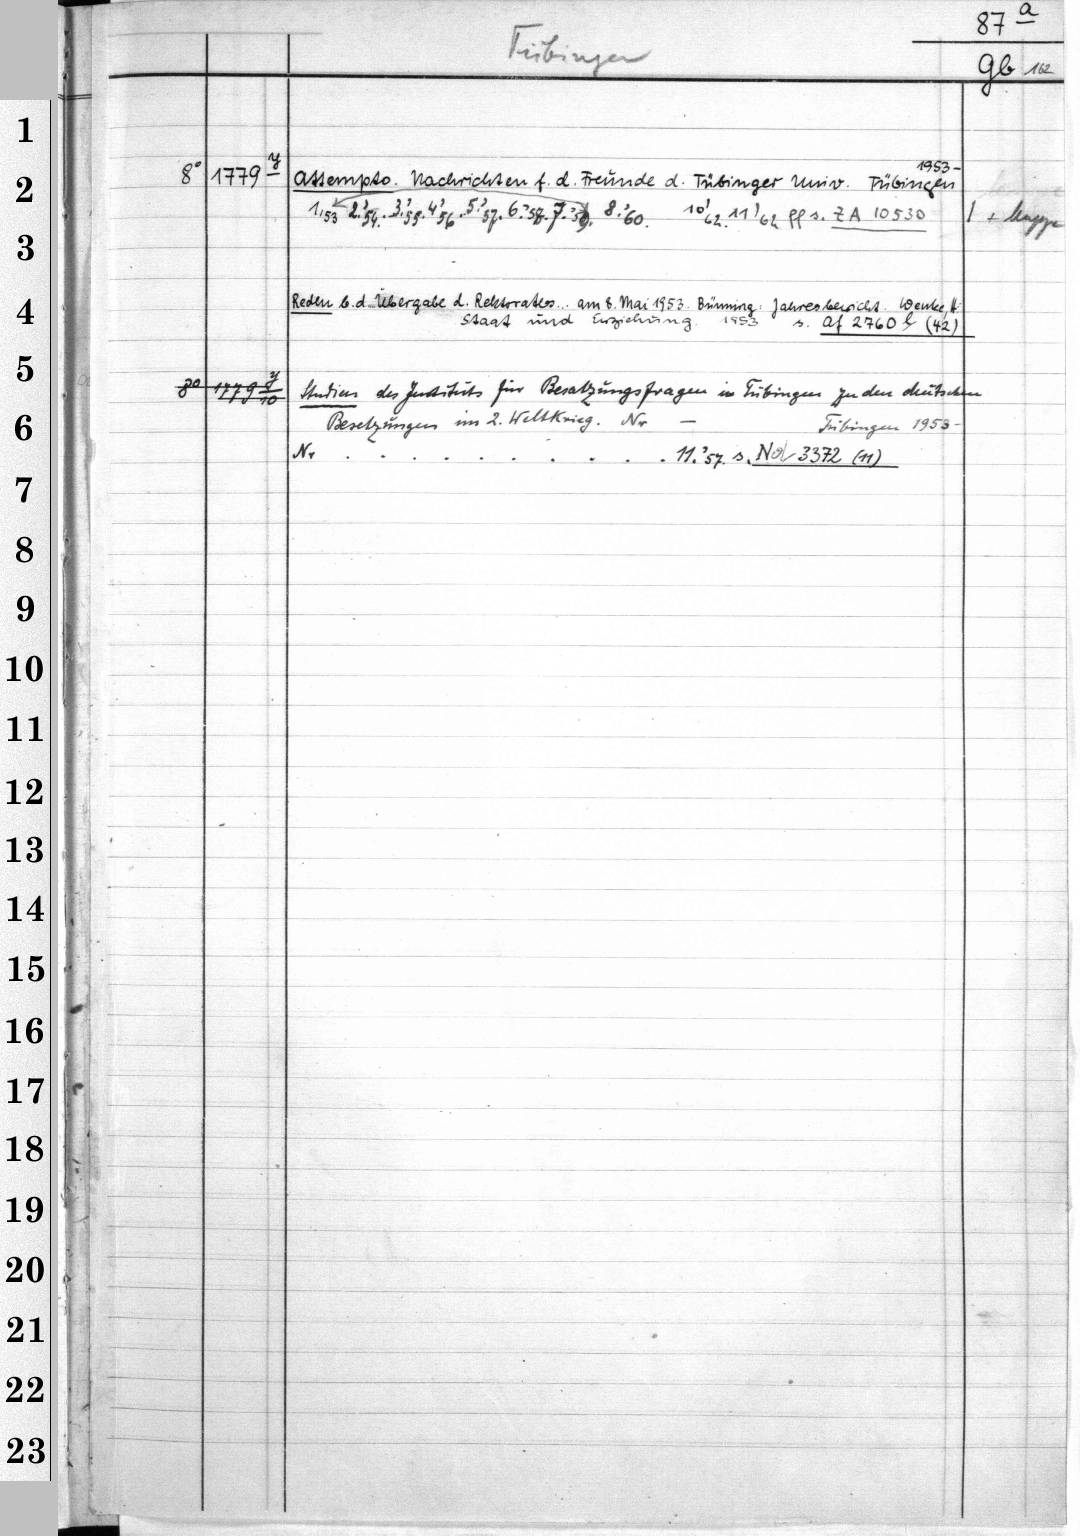 87 a
Tübingen
Gb 162
1
1953-
2 8° 1779 y Attempto. Nachrichten f. d. Freunde d. Tübinger Univ. Tübingen
1,53 2.'54. 3.'55. 4.'56 5.'57. 6.'58. 7.'59. 8.'60. 10'62. 11'62 ff s. ZA 10530 1 + Mappe
3
4 Reden b. d. Übergabe d. Rektorates... am 8. Mai 1953. Bünning: Jahresbericht. Wenke, H:
Staat und Erziehung. 1953 s. Af 2760 b (42)
5
8° 1779 y/10 Studien des Instituts für Besatzungsfragen in Tübingen zu den deutschen
6 Besetzungen im 2. Weltkrieg. Nr — Tübingen 1953-
Nr . . . . . . . . . . 11.'57. s. Nd 3372 (11)
7
8
9
10
11
12
13
14
15
16
17
18
19
20
21
22
23